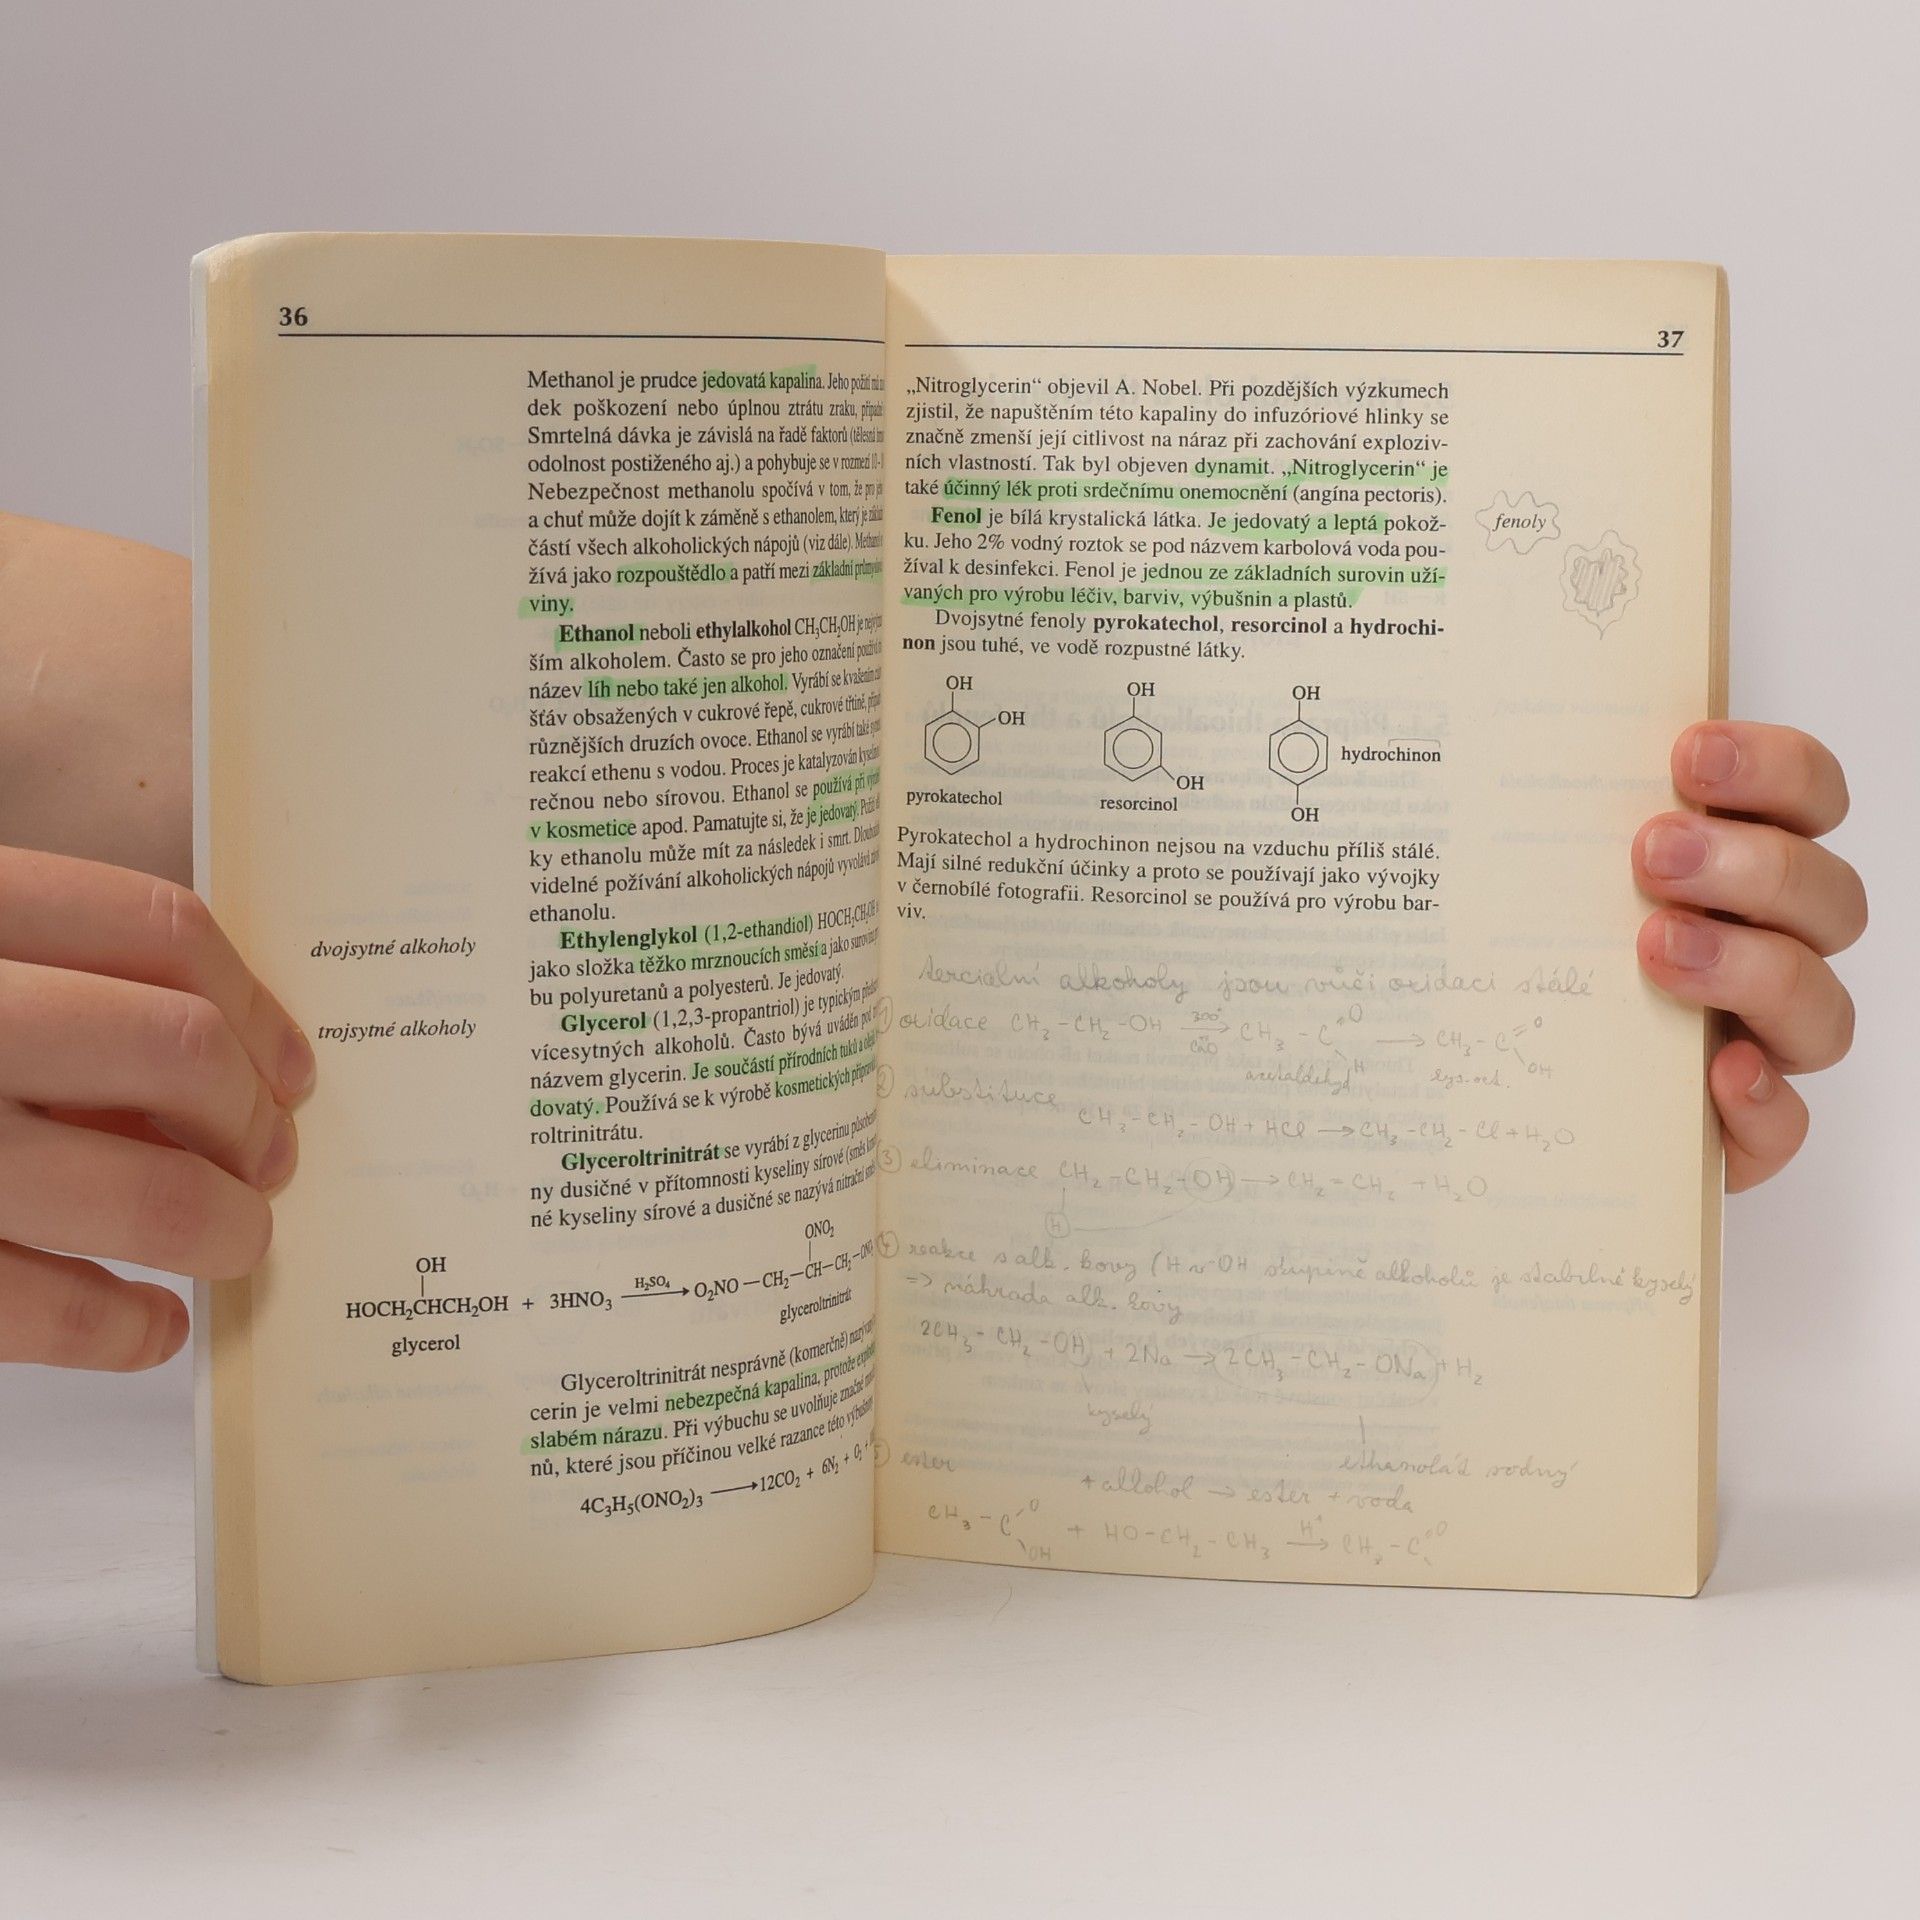 36
Methanol je prudce jedovatá kapalina. Jeho požití má
dek poškození nebo úplnou ztrátu zraku, případně
Smrtelná dávka je závislá na řadě faktorů (tělesná
odolnost postiženého aj.) a pohybuje se v rozmezí
Nebezpečnost methanolu spočívá v tom, že pro
a chuť může dojít k záměně s ethanolem, který je
částí všech alkoholických nápojů (viz dále).
žívá jako rozpouštědlo a patří mezi základní
viny.
Ethanol neboli ethylalkohol CH₃CH₂OH je
ším alkoholem. Často se pro jeho označení používá
název líh nebo také jen alkohol. Vyrábí se kvašením
šťáv obsažených v cukrové řepě, cukrové třtině,
různějších druzích ovoce. Ethanol se vyrábí také
reakcí ethenu s vodou. Proces je katalyzován
rečnou nebo sírovou. Ethanol se používá při
v kosmetice apod. Pamatujte si, že je jedovatý.
ky ethanolu může mít za následek i smrt.
videlné požívání alkoholických nápojů vyvolává
ethanolu.
dvojsytné alkoholy
Ethylenglykol (1,2-ethandiol) HOCH₂CH₂OH
jako složka těžko mrznoucích směsí a jako
bu polyuretanů a polyesterů. Je jedovatý.
trojsytné alkoholy
Glycerol (1,2,3-propantriol) je typickým
vícesytných alkoholů. Často bývá uváděn pod
názvem glycerin. Je součástí přírodních tuků a
dovatý. Používá se k výrobě kosmetických
roltrinitrátu.
Glyceroltrinitrát se vyrábí z glycerinu
ny dusičné v přítomnosti kyseliny sírové (směs
né kyseliny sírové a dusičné se nazývá nitrační
OH
ONO₂
HOCH₂CHCH₂OH + 3HNO₃ H₂SO₄ → O₂NO — CH₂ — CH — CH₂ — ONO₂
glycerol
glyceroltrinitrát
Glyceroltrinitrát nesprávně (komerčně)
cerin je velmi nebezpečná kapalina, protože
slabém nárazu. Při výbuchu se uvolňuje značné
nů, které jsou příčinou velké razance této
4C₃H₅(ONO₂)₃ → 12CO₂ + 6N₂ + O₂ +
37
„Nitroglycerin“ objevil A. Nobel. Při pozdějších výzkumech
zjistil, že napuštěním této kapaliny do infuzóriové hlinky se
značně zmenší její citlivost na náraz při zachování exploziv-
ních vlastností. Tak byl objeven dynamit. „Nitroglycerin“ je
také účinný lék proti srdečnímu onemocnění (angína pectoris).
Fenol je bílá krystalická látka. Je jedovatý a leptá pokož-
fenoly
ku. Jeho 2% vodný roztok se pod názvem karbolová voda pou-
žíval k desinfekci. Fenol je jednou ze základních surovin uží-
vaných pro výrobu léčiv, barviv, výbušnin a plastů.
Dvojsytné fenoly pyrokatechol, resorcinol a hydrochi-
non jsou tuhé, ve vodě rozpustné látky.
OH OH OH
OH
hydrochinon
OH
pyrokatechol
resorcinol
OH
Pyrokatechol a hydrochinon nejsou na vzduchu příliš stálé.
Mají silné redukční účinky a proto se používají jako vývojky
v černobílé fotografii. Resorcinol se používá pro výrobu bar-
viv.
terciální alkoholy jsou vůči oxidaci stálé
1 oxidace CH₃ - CH₂ - OH 300° CuO → CH₃ - C O H → CH₃ - C O OH
acetaldehyd kys. oct.
2 substituce
CH₃ - CH₂ - OH + HCl → CH₃ - CH₂ - Cl + H₂O
3 eliminace CH₂ - CH₂ - OH → CH₂ = CH₂ + H₂O
H
4 reakce s alk. kovy (H v OH skupině alkoholů je stabilně kyselý
=> náhrada alk. kovy
2CH₃ - CH₂ - OH + 2Na → 2CH₃ - CH₂ - ONa + H₂
kyselý
ethanolát sodný
5 ester
+ alkohol → ester + voda
CH₃ - C O OH + HO - CH₂ - CH₃ H⁺ → CH₃ - C O